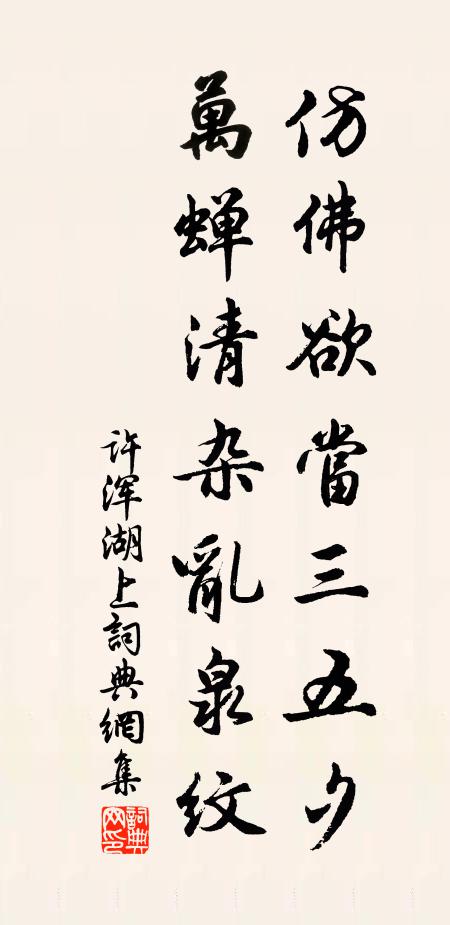 仿佛欲當三五夕
萬蟬清杂亂泉紋
许浑湖上詞典網集
詞典網印